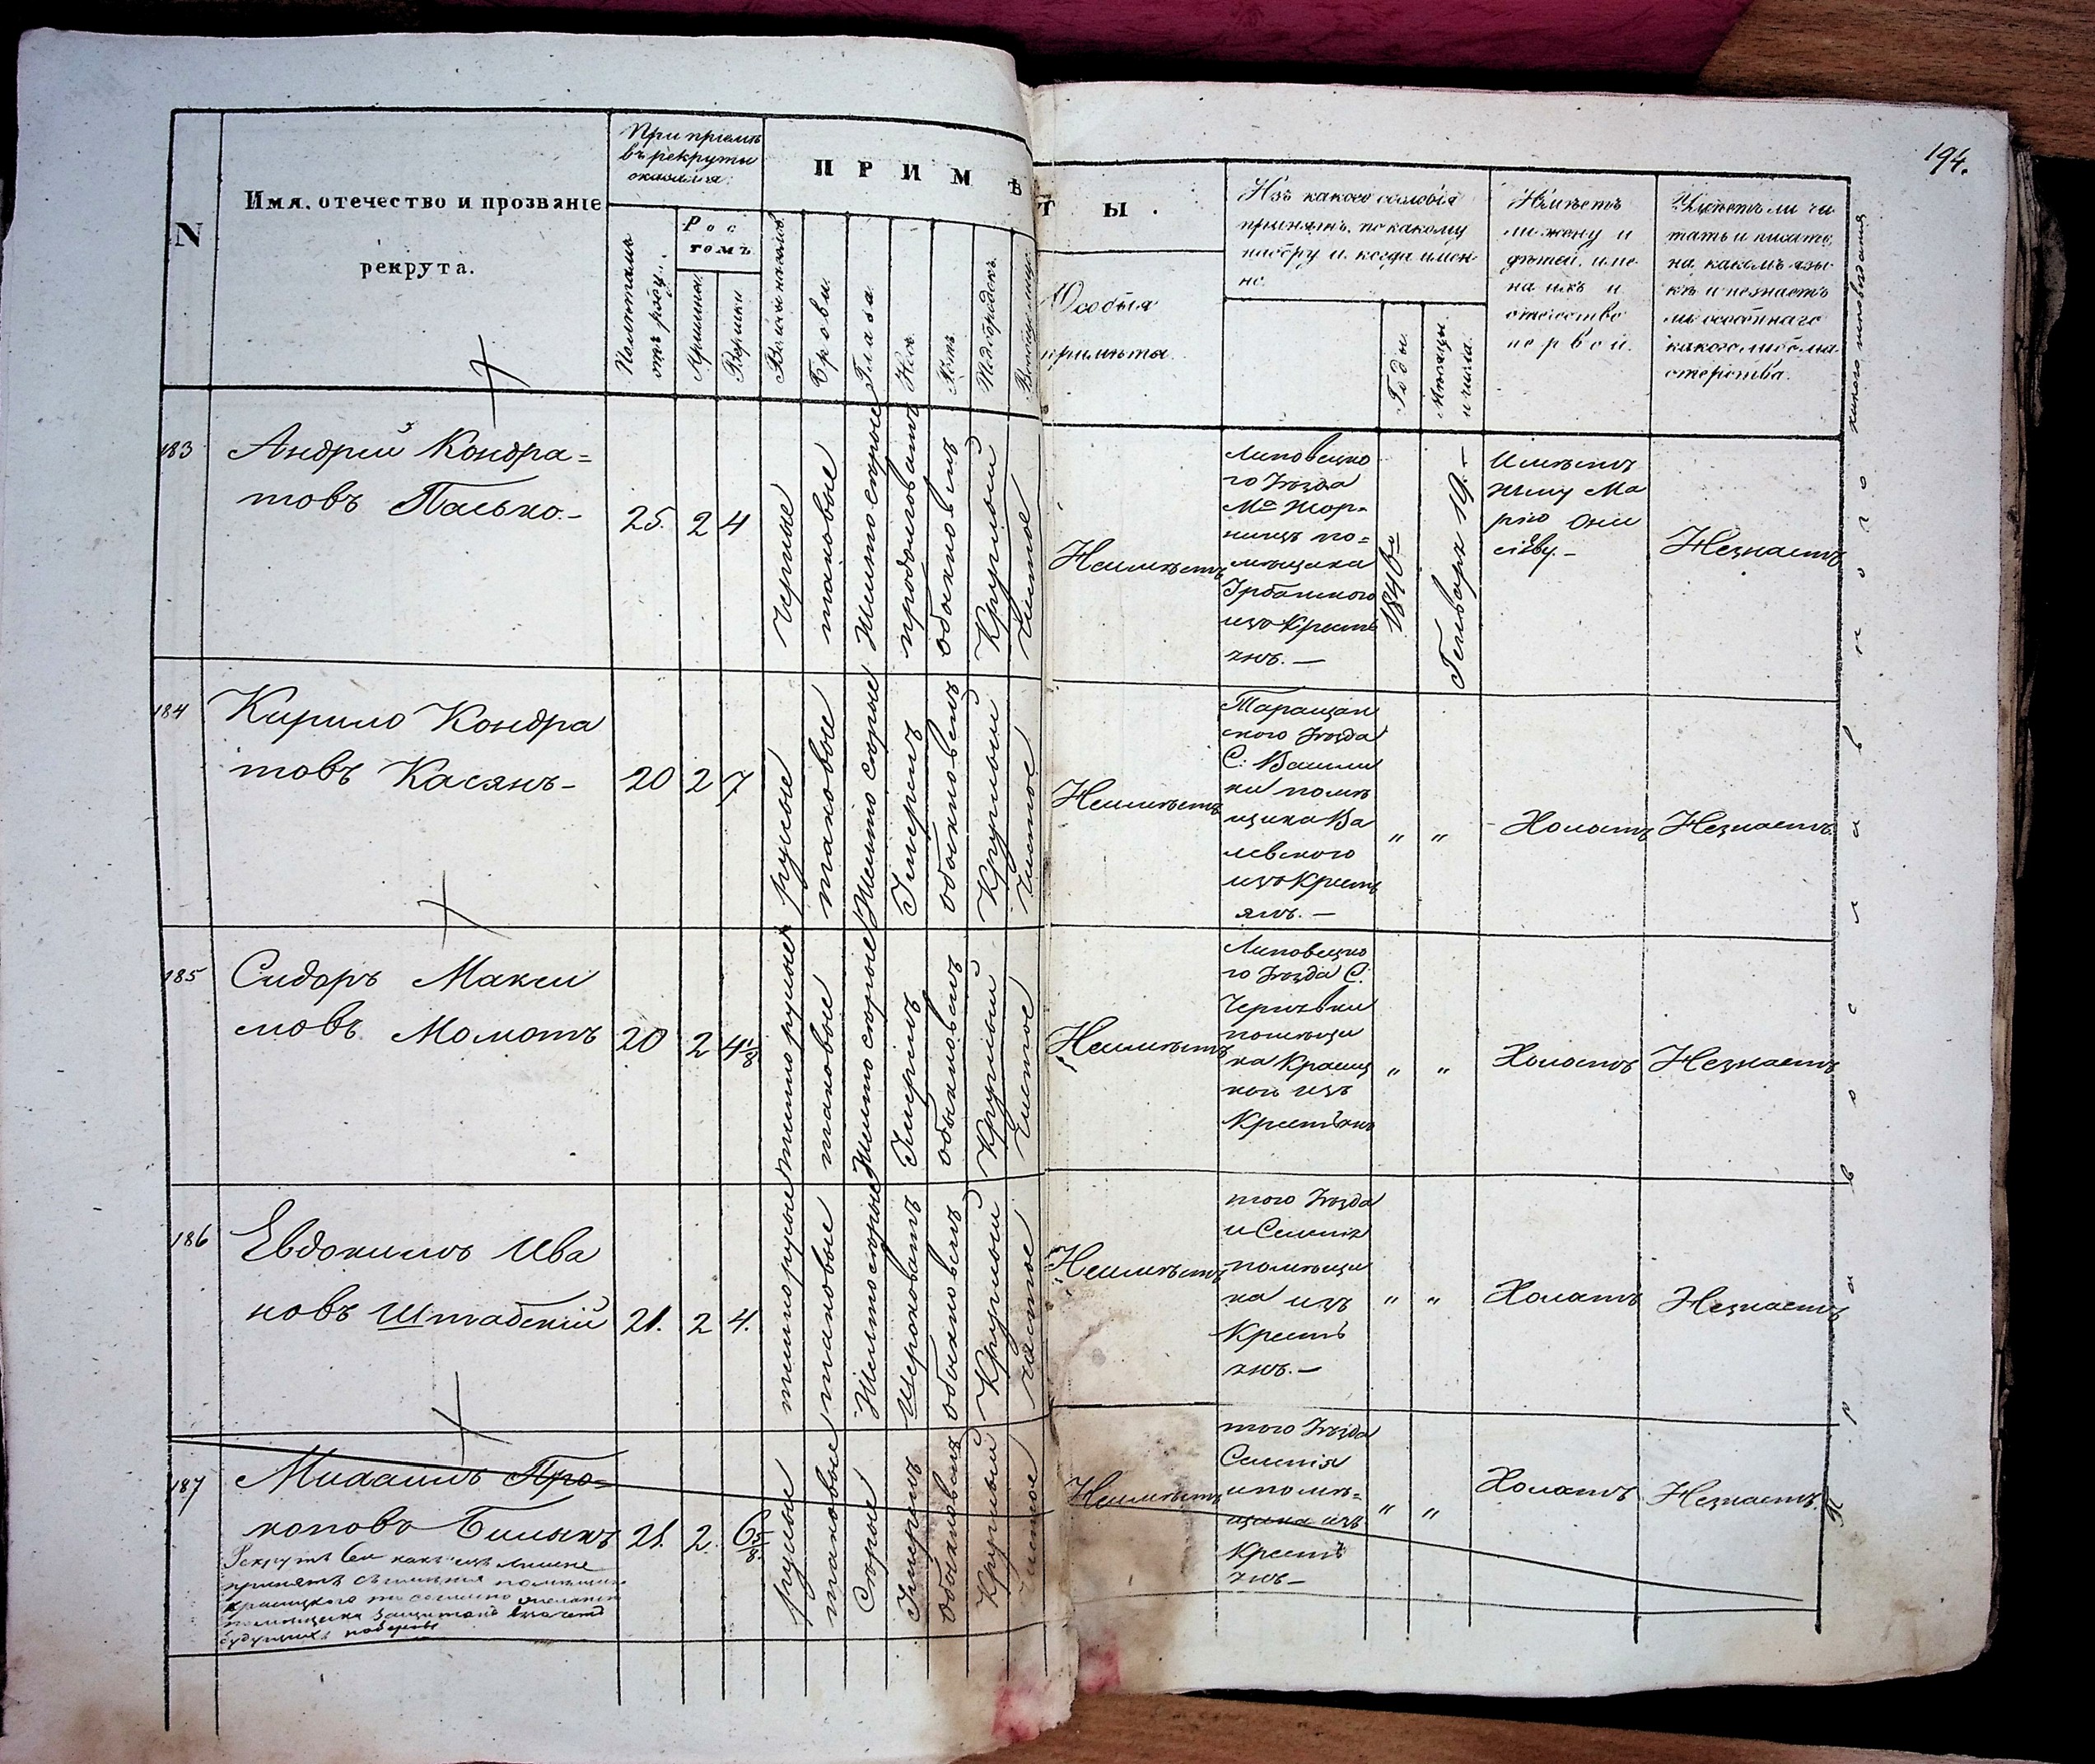 194.
N
Имя, отечество и прозваніе
рекрута.
При пріемѣ
въ рекруты
оказался:
Полѣтамъ
отъ роду
Рос
томъ
Аршины
Вершки
ПРИМѢТЫ.
Брови
Глаза
Носъ
Ротъ
Подбородокъ
Особыя
примѣта
Изъ какого сословія
принятъ, по какому
набору и когда имен
но.
Годы
Мѣсяцы
и числа.
Имѣетъ
ли жену и
дѣтей, име
на ихъ и
отечество
первой.
Умѣетъ ли чи
тать и писать,
на какомъ язы
кѣ и незнаетъ
ли особеннаго
какого либо ма
стерства.
какого исповѣданія
183
Андрей Кондра=
товъ Палько.-
25.
2
4
Черные
таковые
Желто серые
продолговатъ
обыкновенъ
Круглый
Чистое
Неимѣетъ
Липовецко
го Уѣзда
по=
мѣщика
Урбанского
изъ Крестъ
янъ.—
1846го
Генваря 19.-
Имѣетъ
жену Ма
рію
Незнаетъ
184
Кирило Кондра
товъ Касянъ-
20
2
7
русые
таковые
Желто серые
Умеренъ
обыкновенъ
Круглый
Чистое
Неимѣетъ
Таращан
ского Уѣзда
С:
помѣ
щика Ва
левского
изъ Крестъ
янъ.—
"
"
Холостъ
Незнаетъ
185
Сидоръ Макси
мовъ Момотъ
20
2
4 1/8
темнорусые
таковые
Желто серые
Умеренъ
обыкновенъ
Круглый
Чистое
Неимѣетъ
Липовецко
го Уѣзда С:
помѣщи
ка
изъ
Крестьянъ
"
"
Холостъ
Незнаетъ
186
Евдокимъ Ива
новъ Штабскій
21.
2
4.
темнорусые
таковые
Желто серые
Широковатъ
обыкновенъ
Круглый
чистое
Неимѣетъ
того Уѣзда
и Селенія
помѣщи
ка изъ
Крестъ
янъ.—
"
"
Холостъ
Незнаетъ
187
Михаилъ Про=
коповъ Билыкъ
21.
2.
6 5/8
русые
таковые
Серые
Умеренъ
обыкновенъ
Круглый
Чистое
Неимѣетъ
того Уѣзда
Селенія
и помѣ=
щика изъ
Крестъ
янъ—
"
"
Холостъ
Незнаетъ
Рекрутъ сей какъ
принятъ помѣщика
помѣщика
будущихъ наборовъ
Православного